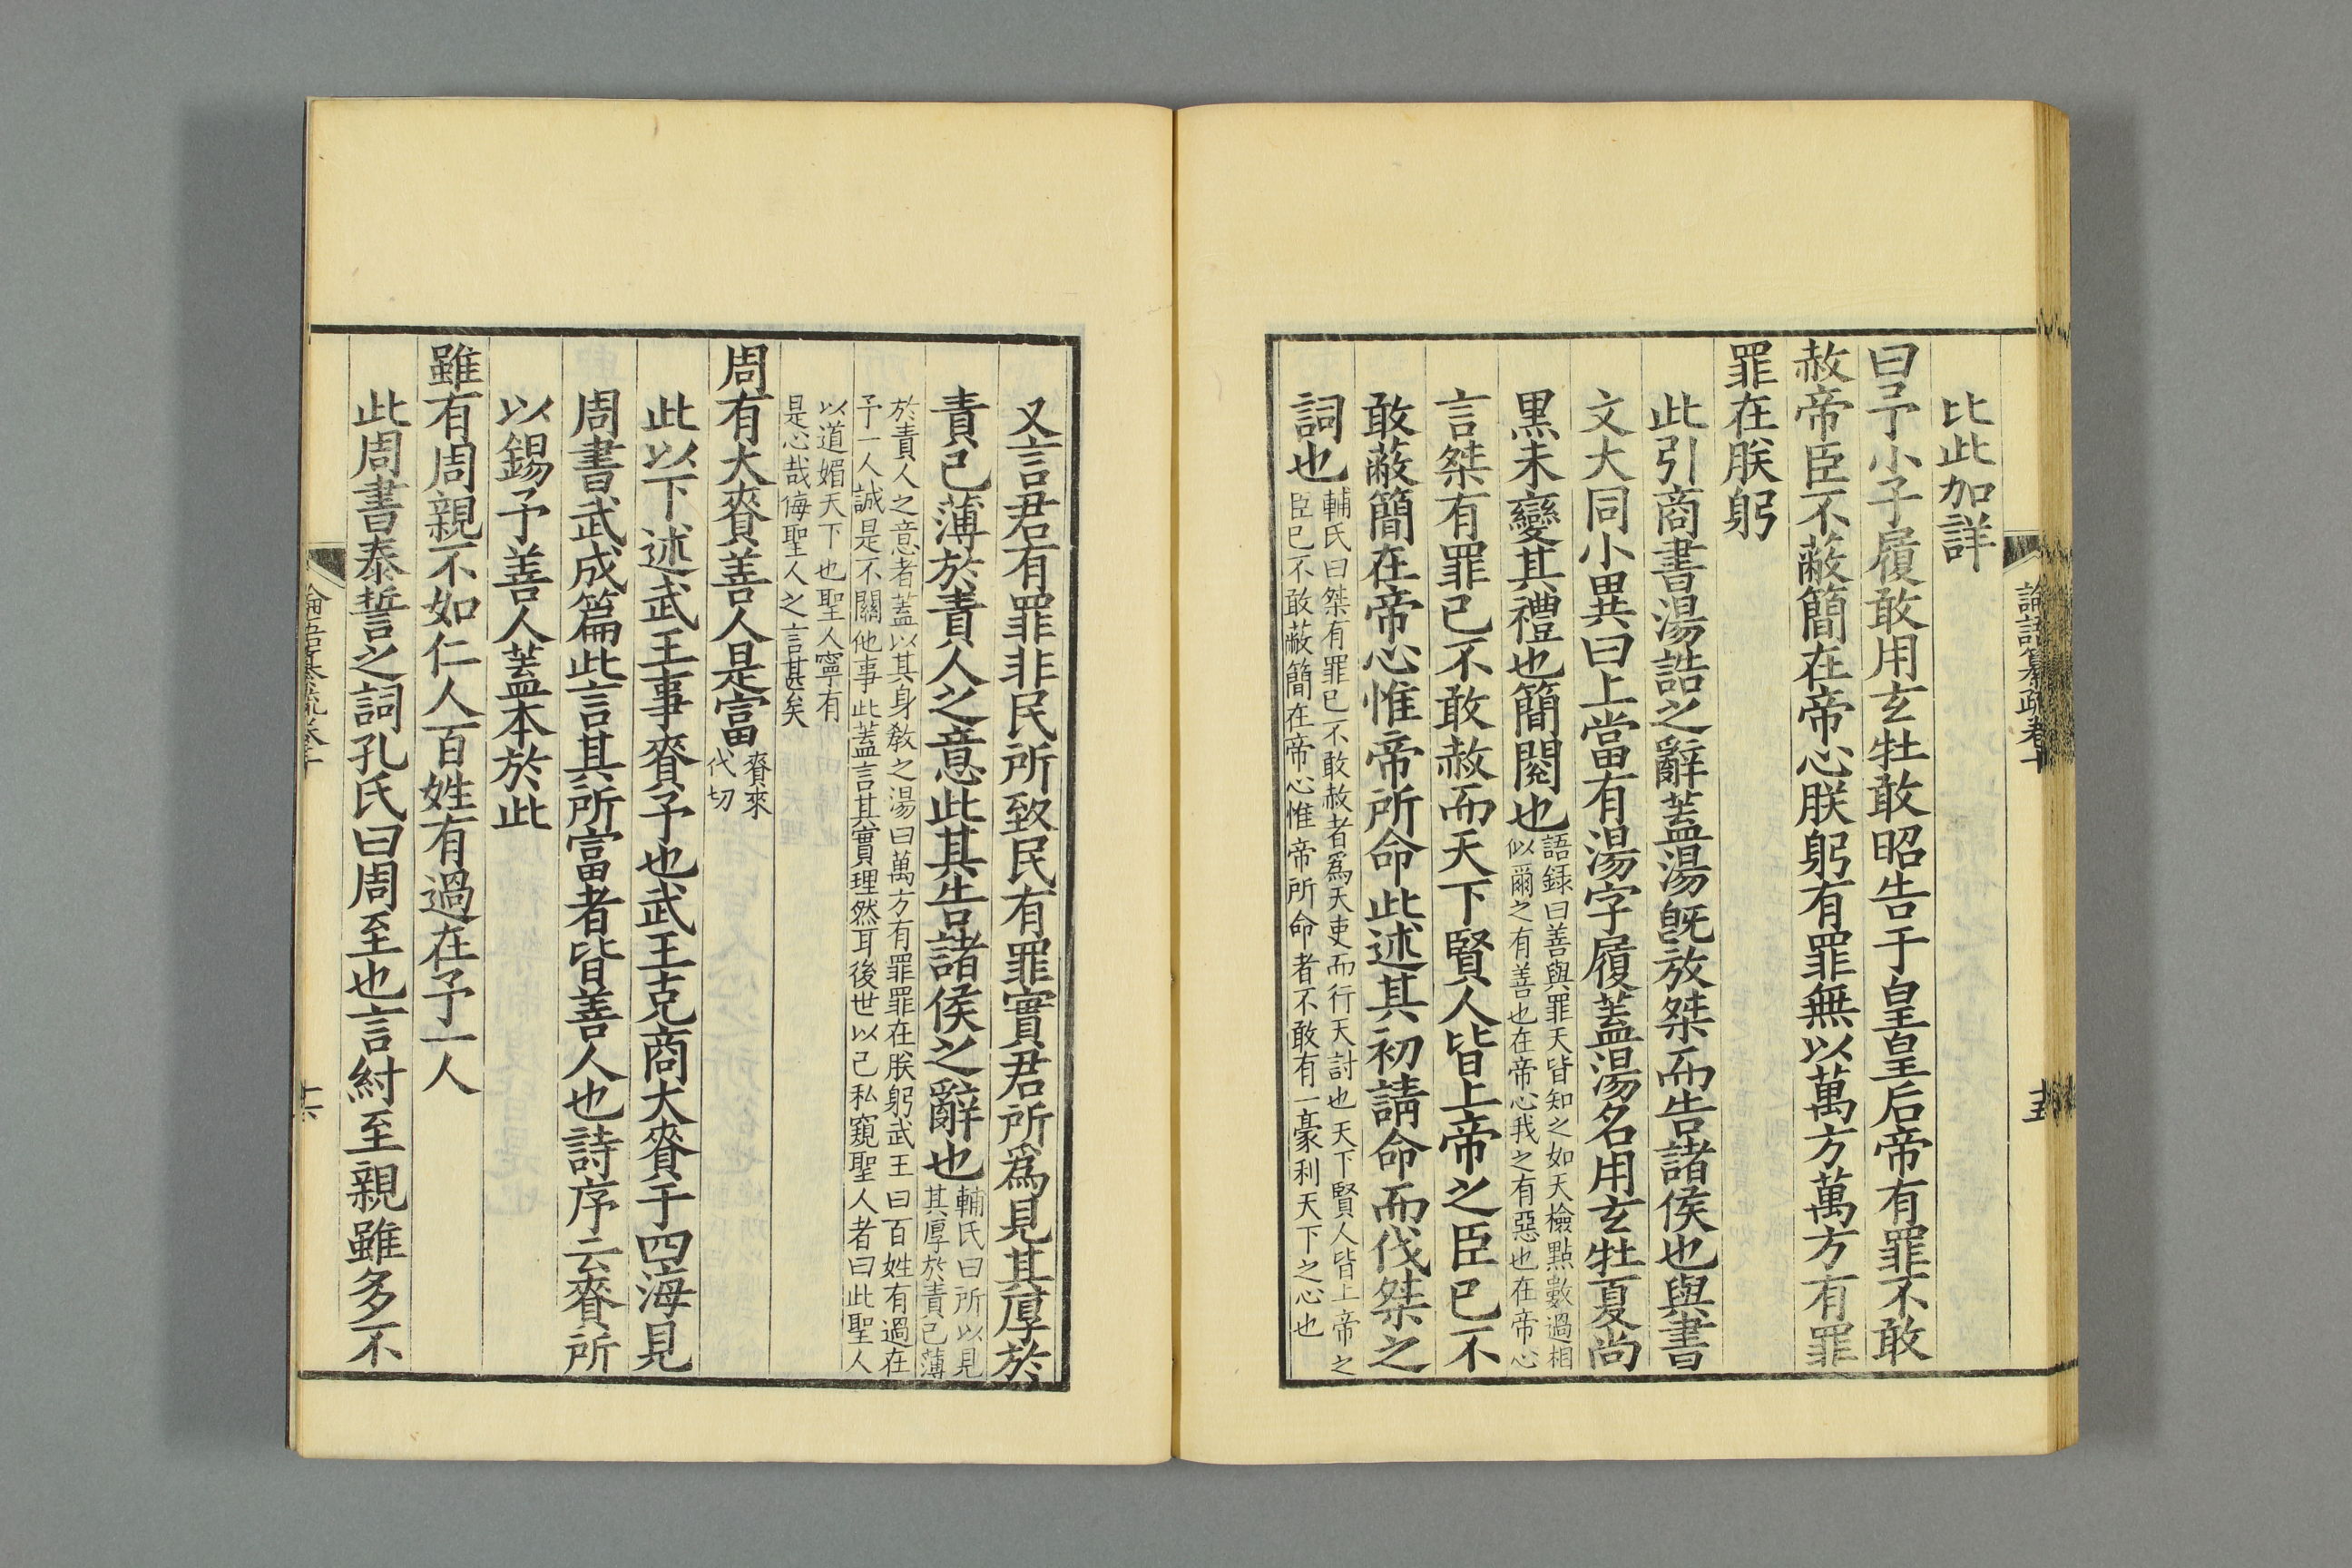 論語纂疏卷十
十五
比此加詳
曰予小子履敢用玄牡敢昭告于皇皇后帝有罪不敢
赦帝臣不蔽簡在帝心朕躬有罪無以萬方萬方有罪
罪在朕躬
此引商書湯誥之辭蓋湯旣放桀而告諸侯也與書
文大同小異曰上當有湯字履蓋湯名用玄牡夏尚
黑未變其禮也簡閱也語録曰善與罪天皆知之如天檢點數過相
似爾之有善也在帝心我之有惡也在帝心
言桀有罪已不敢赦而天下賢人皆上帝之臣已不
敢蔽簡在帝心惟帝所命此述其初請命而伐桀之
詞也輔氏曰桀有罪已不敢赦者爲天吏而行天討也天下賢人皆上帝之
臣已不敢蔽簡在帝心惟帝所命者不敢有一豪利天下之心也
又言君有罪非民所致民有罪實君所爲見其厚於
責己薄於責人之意此其告諸侯之辭也輔氏曰所以見
其厚於責己薄
於責人之意者蓋以其身敎之湯曰萬方有罪罪在朕躬武王曰百姓有過在
予一人誠是不關他事此蓋言其實理然耳後世以己私窺聖人者曰此聖人
以道媚天下也聖人寧有
是心哉侮聖人之言甚矣
周有大賚善人是富賚來
代切
此以下述武王事賚予也武王克商大賚于四海見
周書武成篇此言其所富者皆善人也詩序云賚所
以錫予善人蓋本於此
雖有周親不如仁人百姓有過在予一人
此周書泰誓之詞孔氏曰周至也言紂至親雖多不
論語纂疏卷十
十六